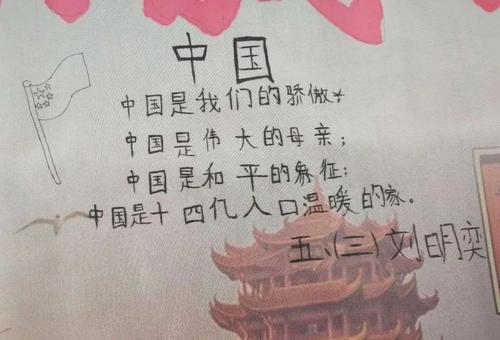 中国
中国是我们的骄傲；
中国是伟大的母亲；
中国是和平的象征；
中国是十四亿人口温暖的家。
五、(三) 刘明奕